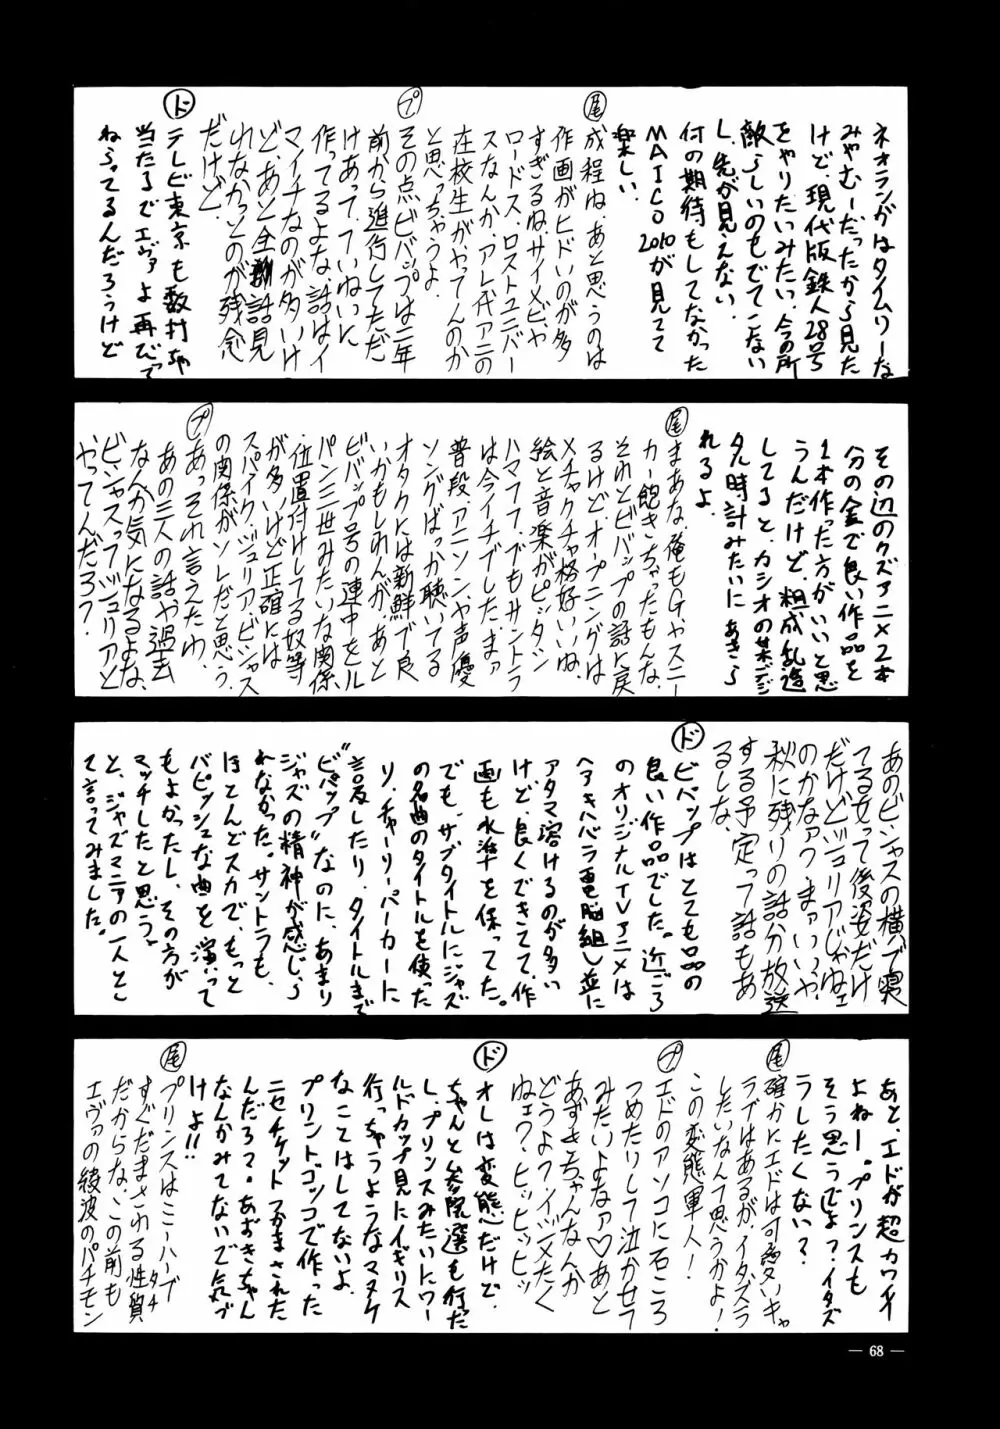 ネオランガはタイムリーな
みやむーだったから見た
けど、現代版鉄人28号
をやりたいみたい。今の所
敵らしいのもでてこない
し、先が見えない。
何の期待もしてなかった
MAICO 2010が見てて
楽しい。
尾
成程ね、あと思うのは
作画がヒドいのが多
すぎるね。サイメビや
ロードス、ロストユニバー
スなんか、アレ代アニの
在校生がやってんのか
と思っちゃうよ。
プ
その点ビバップは二年
前から進行してただ
けあって、ていねいに
作ってるよな。話はイ
マイチなのが多いけ
ど、あと全話見
れなかったのが残念
だけど。
ド
テレビ東京も数打ちゃ
当たるでエヴァよ再びって
ねらってるんだろうけど
その辺のクズアニメ2本
分の金で良い作品を
1本作った方がいいと思
うんだけど、粗成乱造
してると、カシオの某デジ
タル時計みたいにあきら
れるよ。
尾
まあな、俺もG、ヤスニー
カー飽きちゃったもんな。
それとビバップの話に戻
るけどオープニングは
メチャクチャ格好いいね、
絵と音楽がピッタシ
ハマってて、でもサントラ
は今イチプしたまァ
普段、アニソンや声優
ソングばっか聴いてる
オタクには新鮮で良
いかもしれんが、あと
ビバップ号の連中をル
パン三世みたいな関係、
位置付けしてる奴等
が多いけど正確には
スパイク、ジュリア、ビシャス
の関係がソレだと思う。
プ
あっそれ言えたわ、
あの三人の話や過去
なんか気になるよな、
ビシャスってジュリアと
やってんだろ?
あのビシャスの横で喫
てる女って後姿だけ
だけどジュリアじゃねェ
のかなァ?まァいいや、
秋に残りの話分放送
する予定って話もあ
るしな、
ド
ビバップはとても品の
良い作品でした。近ごろ
のオリジナルTVアニメは
ヘアキハバラ電脳組し並に
アタマ溶けるのが多い
けど、良くできてて、作
画も水準を保ってた。
でも、サブタイトルにジャズ
の名曲のタイトルを使った
り、チャーリーパーカーに
言及したり、タイトルまで
"ビバップ"なのに、あまり
ジャズの精神が感じら
れなかった。サントラも、
ほとんどスカで、もっと
バピッシュな曲を演って
もよかったし、その方が
マッチしたと思う。
と、ジャズマニアの一人とし
て言ってみました。
ちゃんと参院選も行った
し、プリンスみたいにワー
ルドカップ見にイギリス
行っちゃうようなマヌケ
なことはしてないよ。
プリントゴッコで作った
ニセチケットつかまされた
んだろ?
尾
プリンスはミーハーで
すぐだまされる性質
だからな、この前も
エヴァの綾波のパチモン
— 68 —